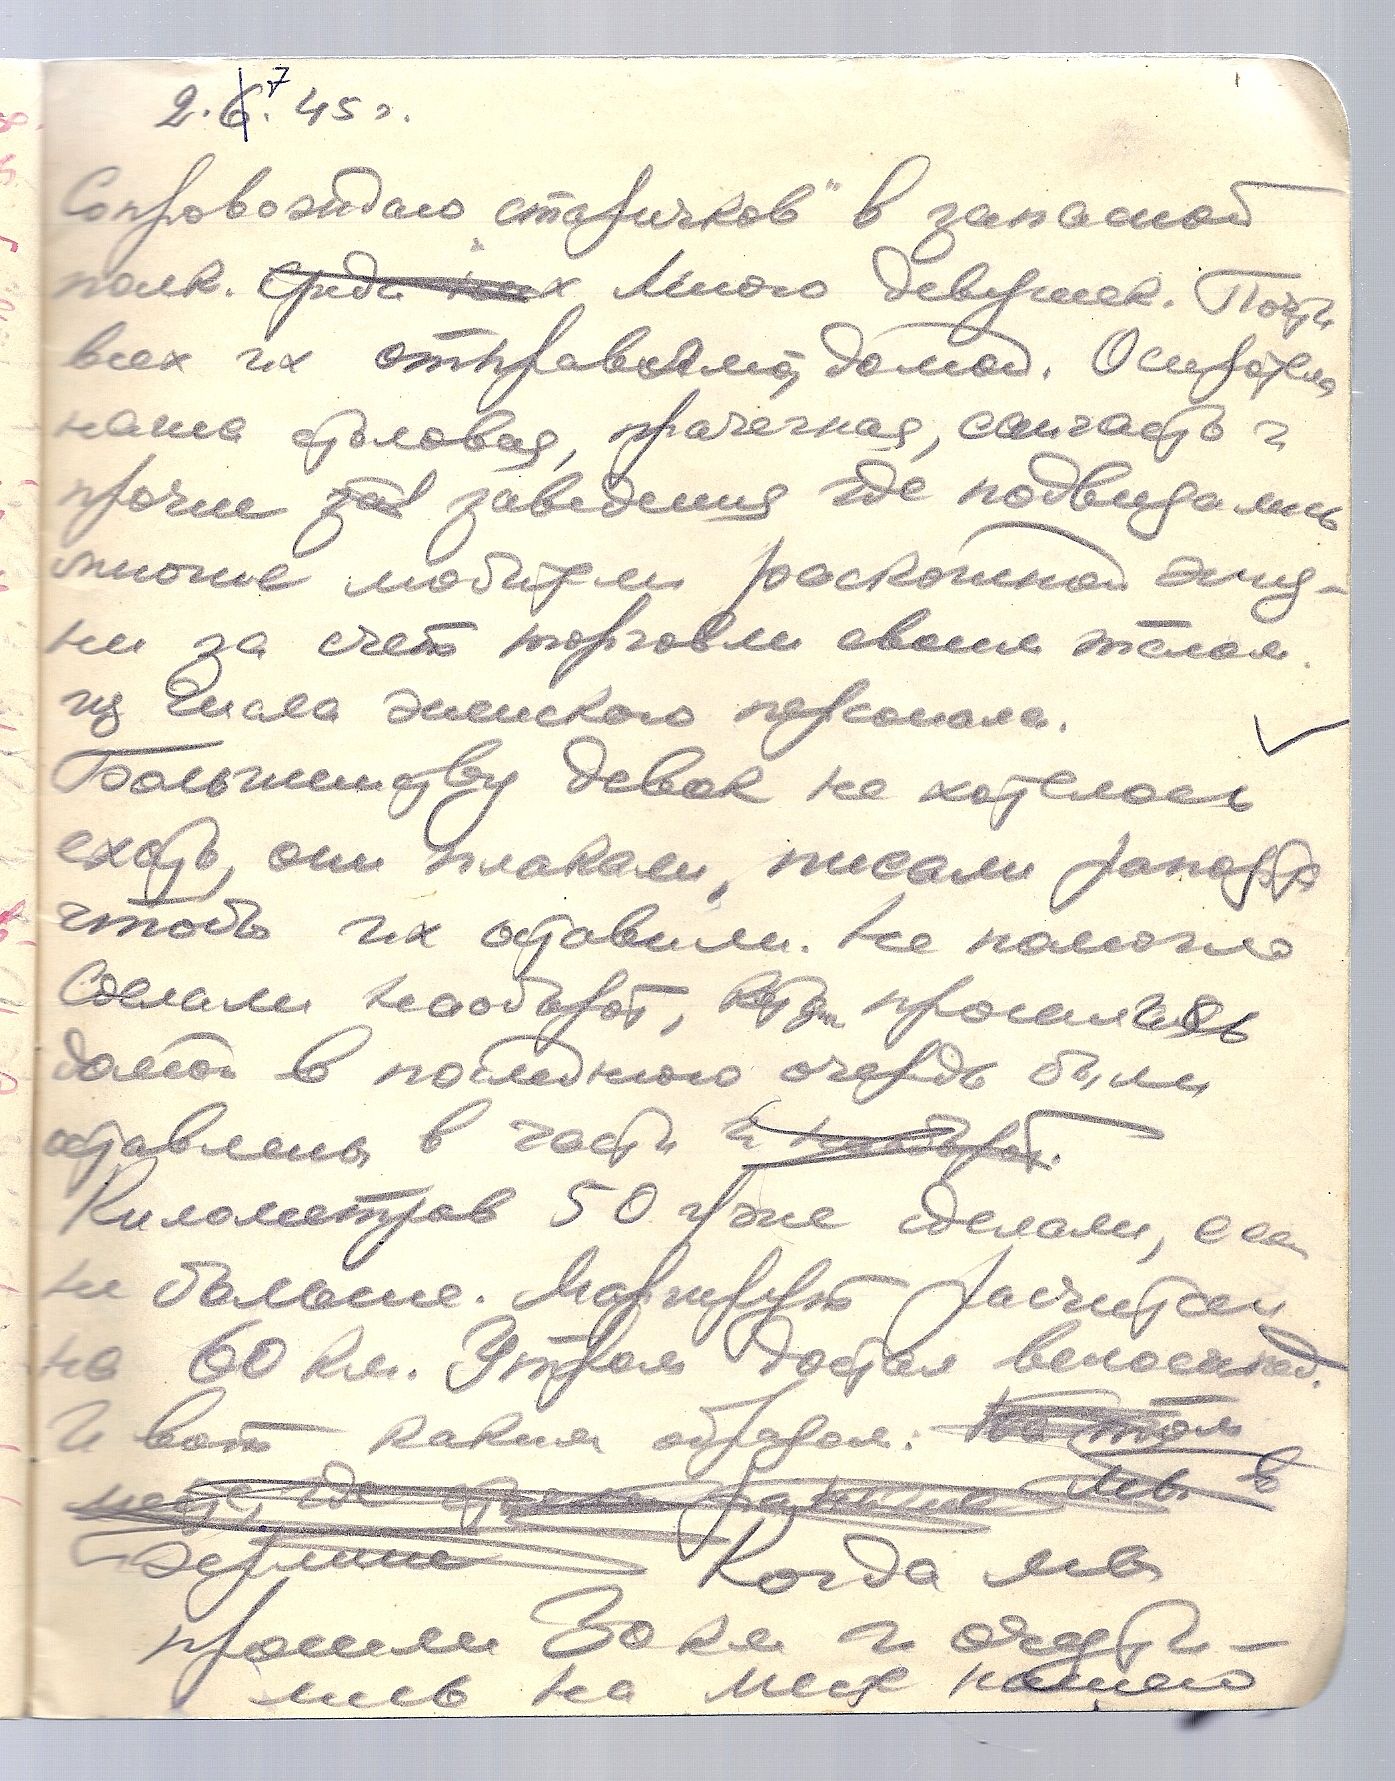 2.7.45 г.
Сопровождаю "старичков" в запасной
полк. Среди них Много девушек. Почти
всех их отправляют домой. Осиротела
наша столовая, прачечная, санчасть и
прочие зав заведения где подвизались
многие любители роскошной жиз-
ни за счет торговли своим телом
из числа женского персонала.
Большинству девок не хотелось
ехать, они плакали, писали рапорта
чтобы их оставили. Не помогло
Сделали наоборот, кто просились
домой в последнюю очередь были
оставлены в части и наоборот.
Километров 50 уже сделали, если
не больше. Маршрут расчитан
на 60 км. Утром достал велосипед.
И вот каким образом: На том
месте, где мы в
Берлине Когда мы
прошли 30 км и очути-
лись на месте нашего